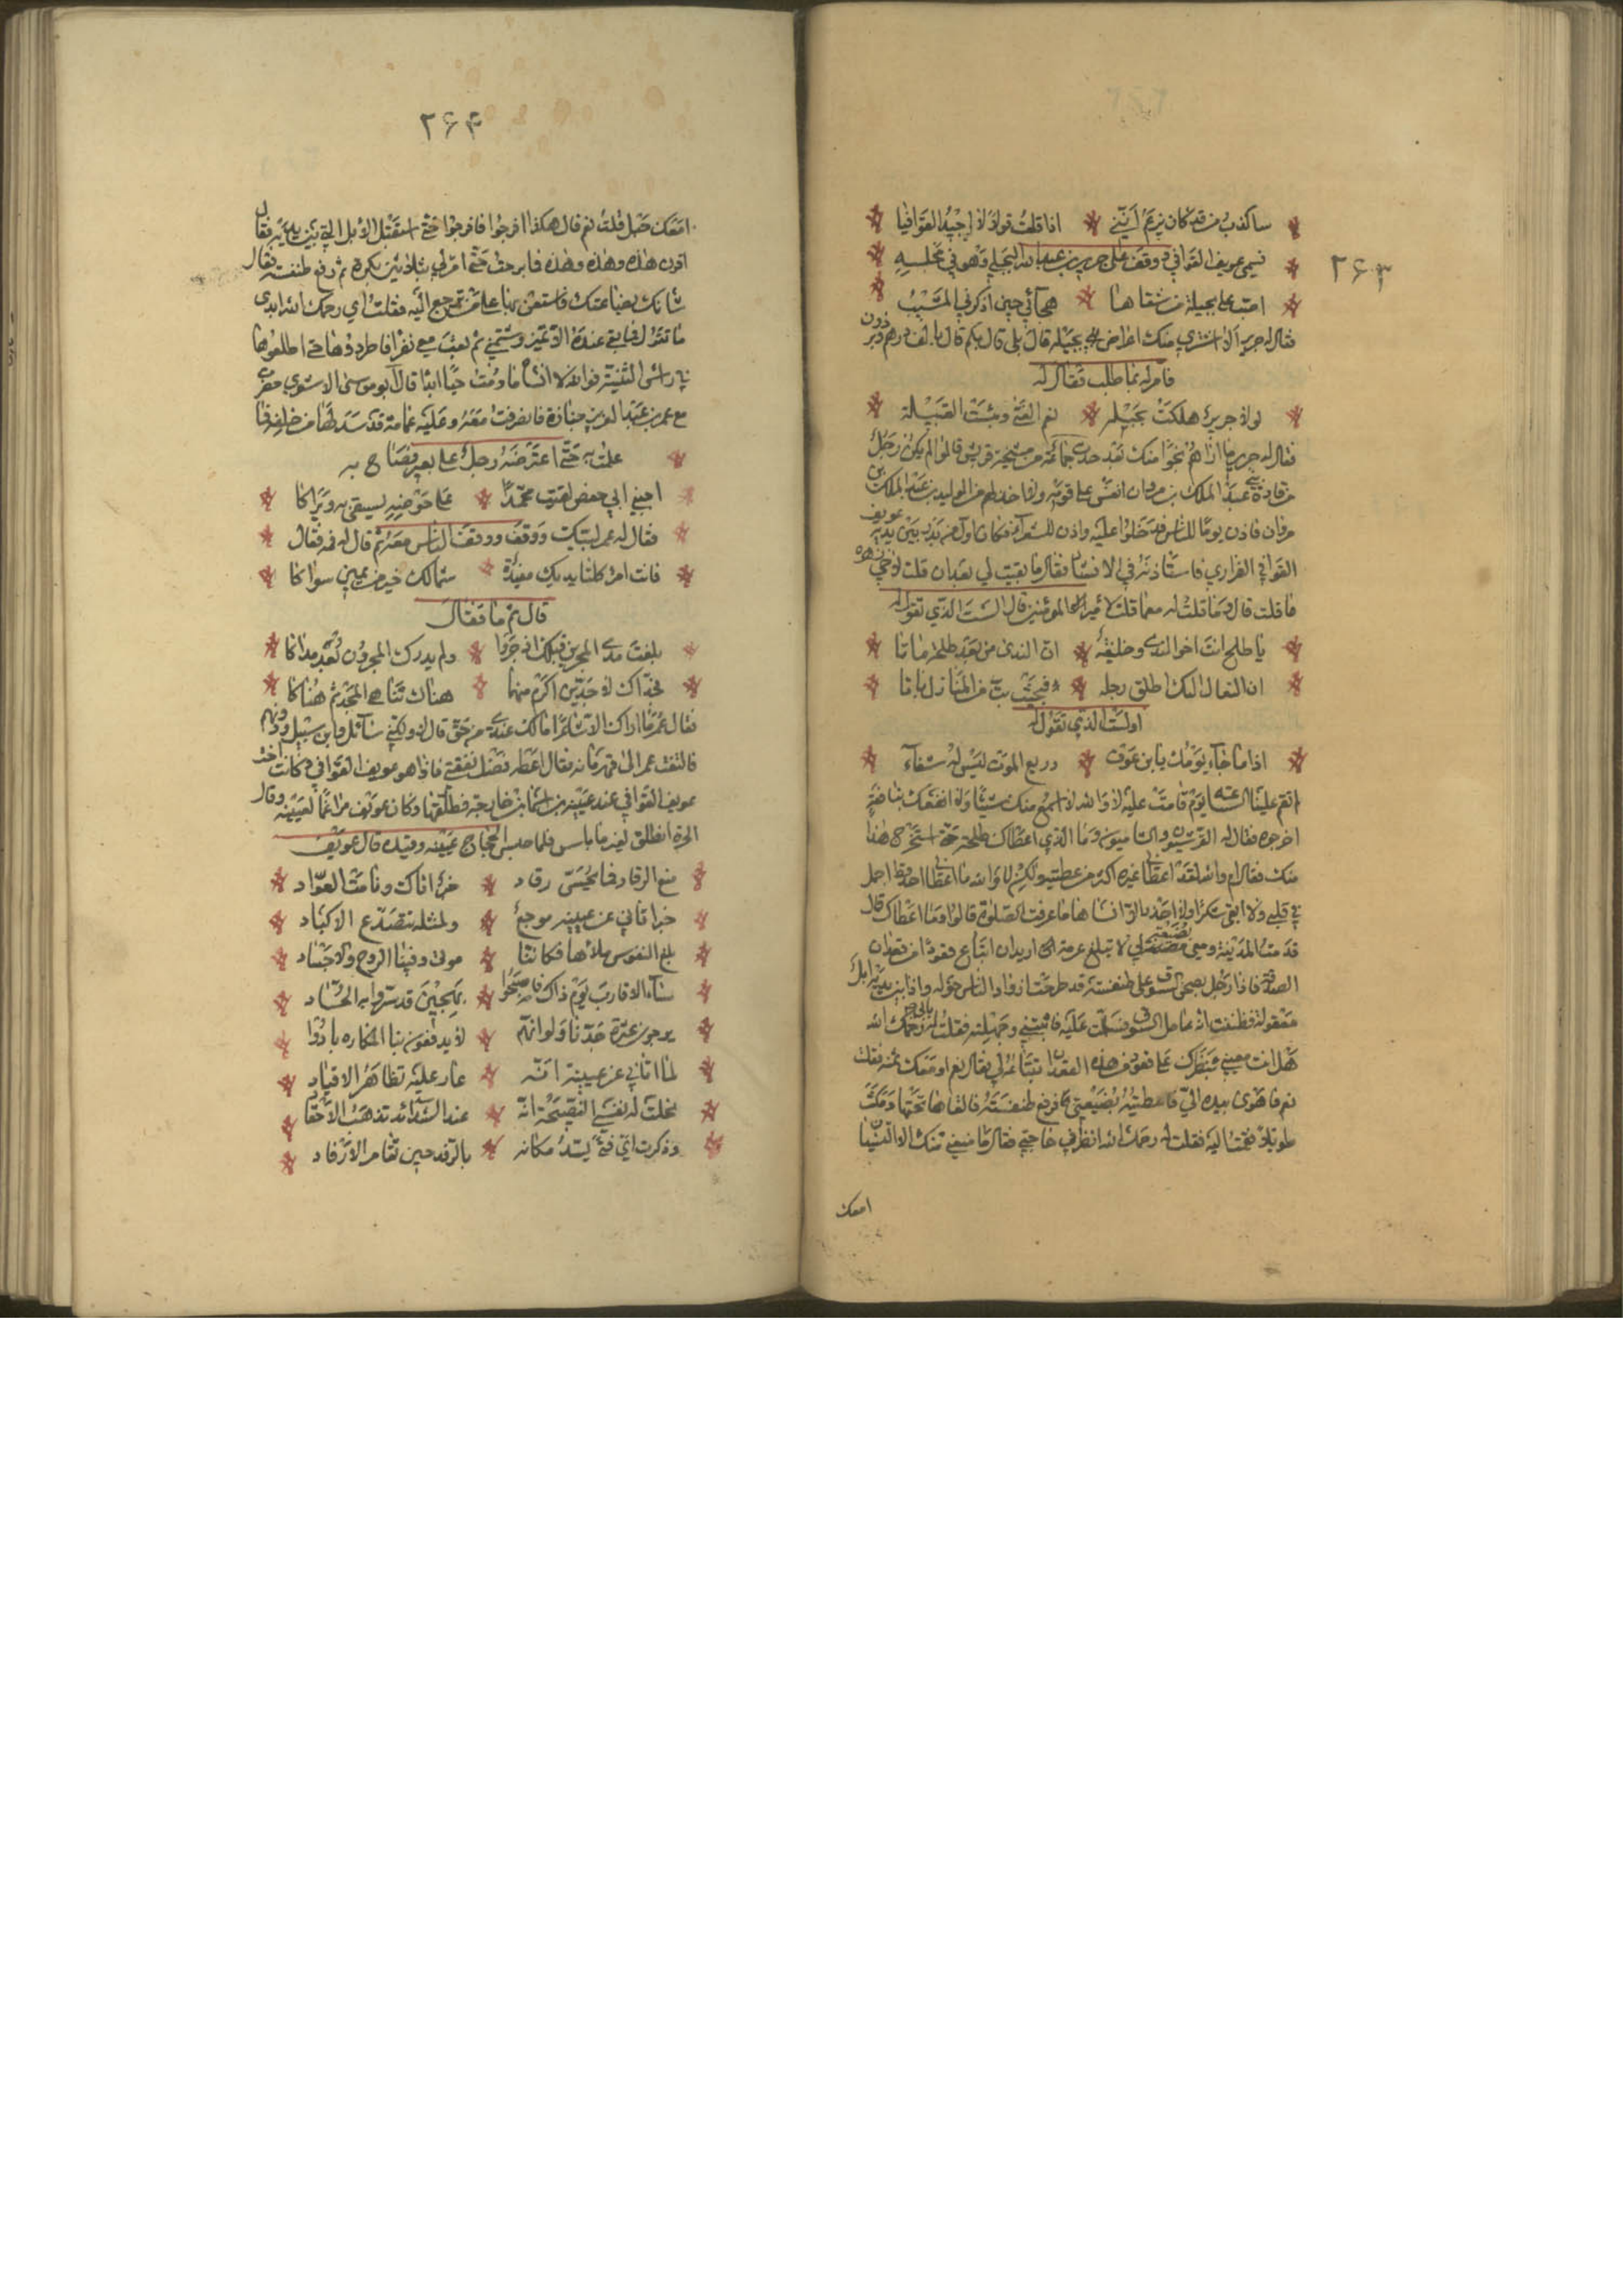 ۲۶۳
ساكذب من قد كان يزعم انني * اذا قلت قولا لا اجيد القوافيا
فسمى عويف القوافي ووقف على جرير بن عبد الله البجلي وهو في مجلسه
اصب على بجيلة من شقاها * هجائي حين ادركني المشيب
فقال له جرير الا اشتري منك اعراض بجيلة قال بلى قال بكم قال بالف درهم وبرذون
فامر له بما طلب فقال له
لولا جرير هلكت بجيله * نعم الفتى وبئست القبيلة
فقال له جرير ما اراهم نجوا منك بعد
عبد الملك بن مروان
مروان فاذن يوما للناس فدخلوا عليه واذن للشعرآء فكان اول من بدر بين يديه عويف
القوافي الفزاري فاستاذنه في الانشاد فقال ما بقيت لي بعد ان قلت لاخي زهره
ما قلت قال وما قلت له مع ما قلت لامير المومنين قال الست الذي تقول له
يا طلح انت اخو الندى وحليفه * ان الندى من بعد طلحة ماتا
ان الفعال اليك اطلق رحله * فبحيث بت من المنازل باتا
اولست الذي تقول له
اذا ما جآء يومك يابن عوف *
الم تقم علينا الساعة يوم قامت عليه لا والله لا اسمع منك شيئا ولا انفعك بنافعة
اخرجوه فقال له القرشيون والشاميون وما الذي اعطاك طلحة حتى استخرج هذا
منك فقال ام والله لقد اعطاني غيره اكثر من عطيته ولكن لا والله ما اعطاني احد قط احلى
في قلبي ولا ابقى شكرا ولا اجدر الا انساها ما عرفت الصلوة قالوا وما اعطاك قال
قدمت المدينة ومعي بضيعة لي لا تبلغ عشرة اريد ان ابتاع قعودا من قعدان
الصدقة فاذا رجل بصحن السوق على طنفسة قد طرحت له واذا الناس حوله واذا بين يديه ابل
معقولة فظننت انه عامل السوق فسلمت عليه فاثبتني وجهلته فقلت له رحمك الله
هل انت معيني ببصرك على قعود من هذه القعدان تبتاعه لي فقال نعم او معك ثمنه فقلت
نعم فاهوى بيده الي فاعطيته بضيعتي فرفع طنفسته فالقاها تحتها ومكث
طويلا ثم قمت اليه فقلت له رحمك الله انظر في حاجتي فقال ما منعني منك الا النسيان
امعك
۲۶۴
امعك حبل قلت نعم قال هكذا افرجوا فافرجوا حتى استقبل الابل التي بين يديه فقال
اقرن هذه وهذه وهذه فما برحت حتى امر لي بثلاثين بكرة ثم رفع طنفسته فقال
شانك ببضاعتك فاستعن بها على من ترجع اليه فقلت اي رحمك الله اتدري
ما تقول فما بقي عنده الا من نهرني وشتمني ثم بعث معي نفرا فاطردوها حتى اطلعوها
في راس الثنية فوالله لا انساه ما دمت حيا ابدا قال ابو موسى الاشعري حضرت
مع عمر بن عبد العزيز جنازة فانصرفت معه وعليه عمامة قد سدلها من خلفه فما
علمت به حتى اعترضه رجل على بعير فصاح به
اجبني ابي حفص لقيت محمدا * على حوضه ليستقى به ويراكا
فقال له عمر لبيك ووقف ووقف الناس معه ثم قال له فمه فقال
فانت امرؤ كلتا يديك مفيدة * شمالك خير من يمين سواكا
قال ثم ما فقال
بلغت مدى المجرين قبلك اذ جروا * ولم يدرك المجرون بعد مداكا
فجداك لا جدين اكرم منهما * هناك تناهى المجد ثم هناكا
فقال عمر ما اراك الا شاعرا مالك عندي من حق قال لا ولكني سائل وابن سبيل وذو سهم
فالتفت عمر الى قهرمانه فقال اعطه فضل نفقتي فاذا هو عويف القوافي وكانت اخت
عويف القوافي عند عيينة بن اسما بن خارجة فطلقها وكان عويف مراغما لعيينة وقال
الحرة لا تطلق لغير ما باس فلما حبس الحجاج عيينة وقيده قال عويف
منع الرقاد فما يحس رقاد * خبر اتاك ونامت العواد
خبر اتاني عن عيينة موجع * ولمثله تتصدع الاكباد
بلغ النفوس بلاؤها فكاننا * موتى وفينا الروح والاجساد
سآء الاقارب يوم ذاك فاصبحوا * بهجين قد سروا به الحساد
يرجون عثرة جدنا ولو انهم * لا يدفعون بنا المكاره بادوا
لما اتاني عن عيينة انه * عان عليه تظاهر الاقياد
نخلت له نفسي النصيحة انه * عند الشدائد تذهب الاحقاد
وذكرت اي فتى يسد مكانه * بالرفد حين تقاصر الارفاد